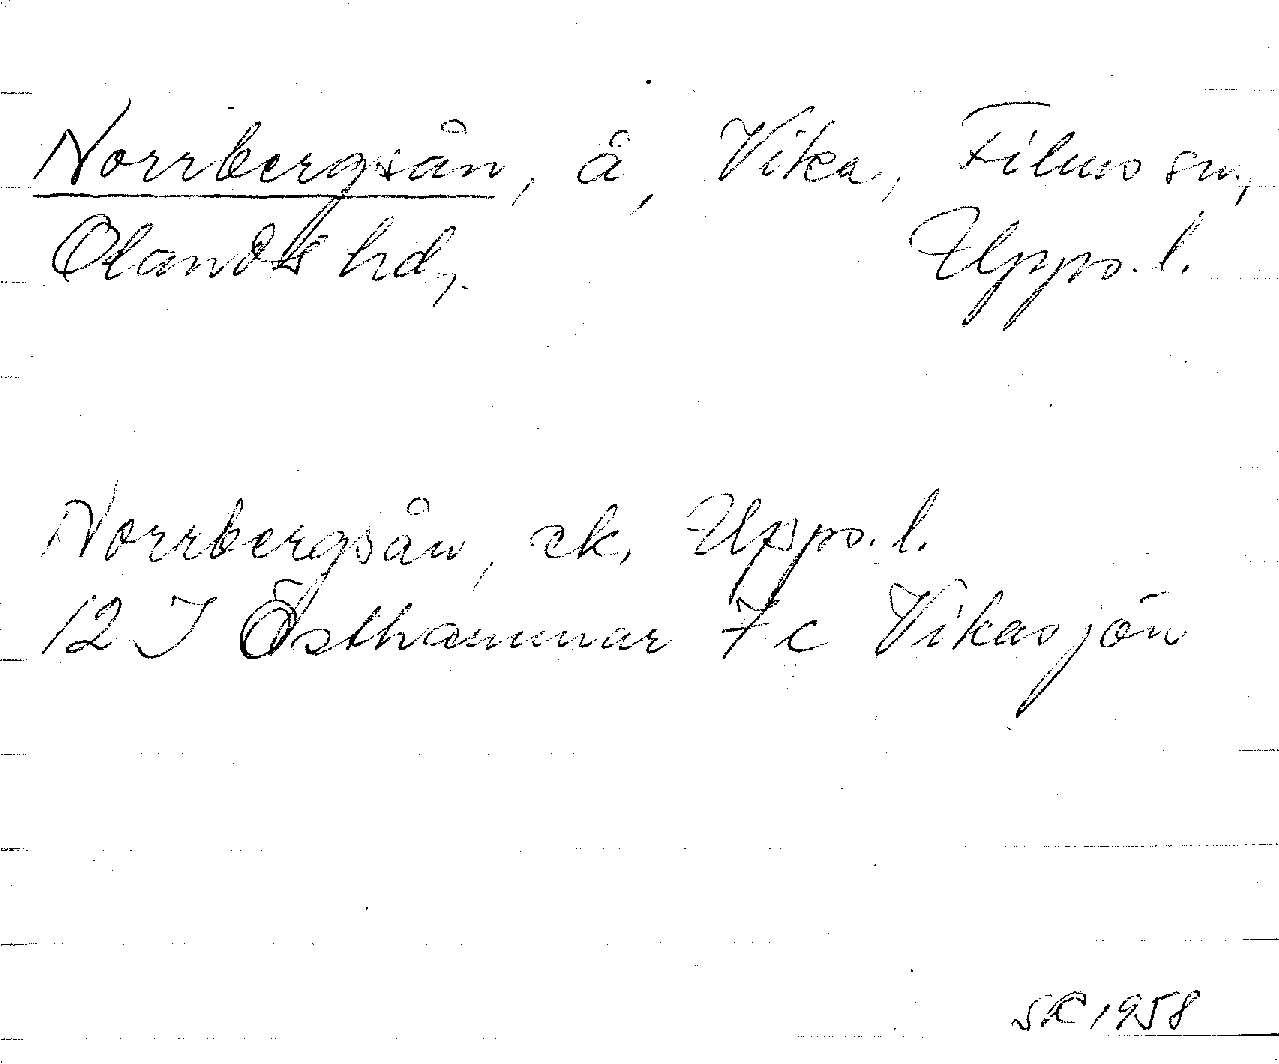 Norrbergsån, å, Vika, Films sn,
Olands hd, Upps. l.
Norrbergsån, ek, Upps. l.
12 I Östhammar 7 c Vikasjön
SR 1958